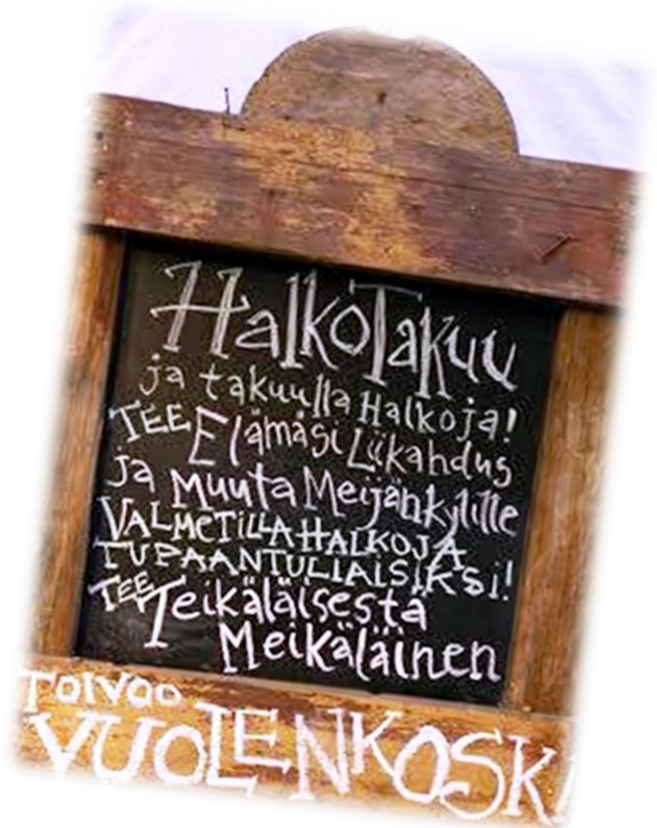 HalkoTakuu
ja takuulla Halkoja!
TEE Elämäsi Liikahdus
ja muuta Meijänkylille
VALMETILLA HALKOJA
TUPAANTULIAISIKSi!
TEE Teikäläisestä
Meikäläinen
TOIVOO
VUOLENKOSKI